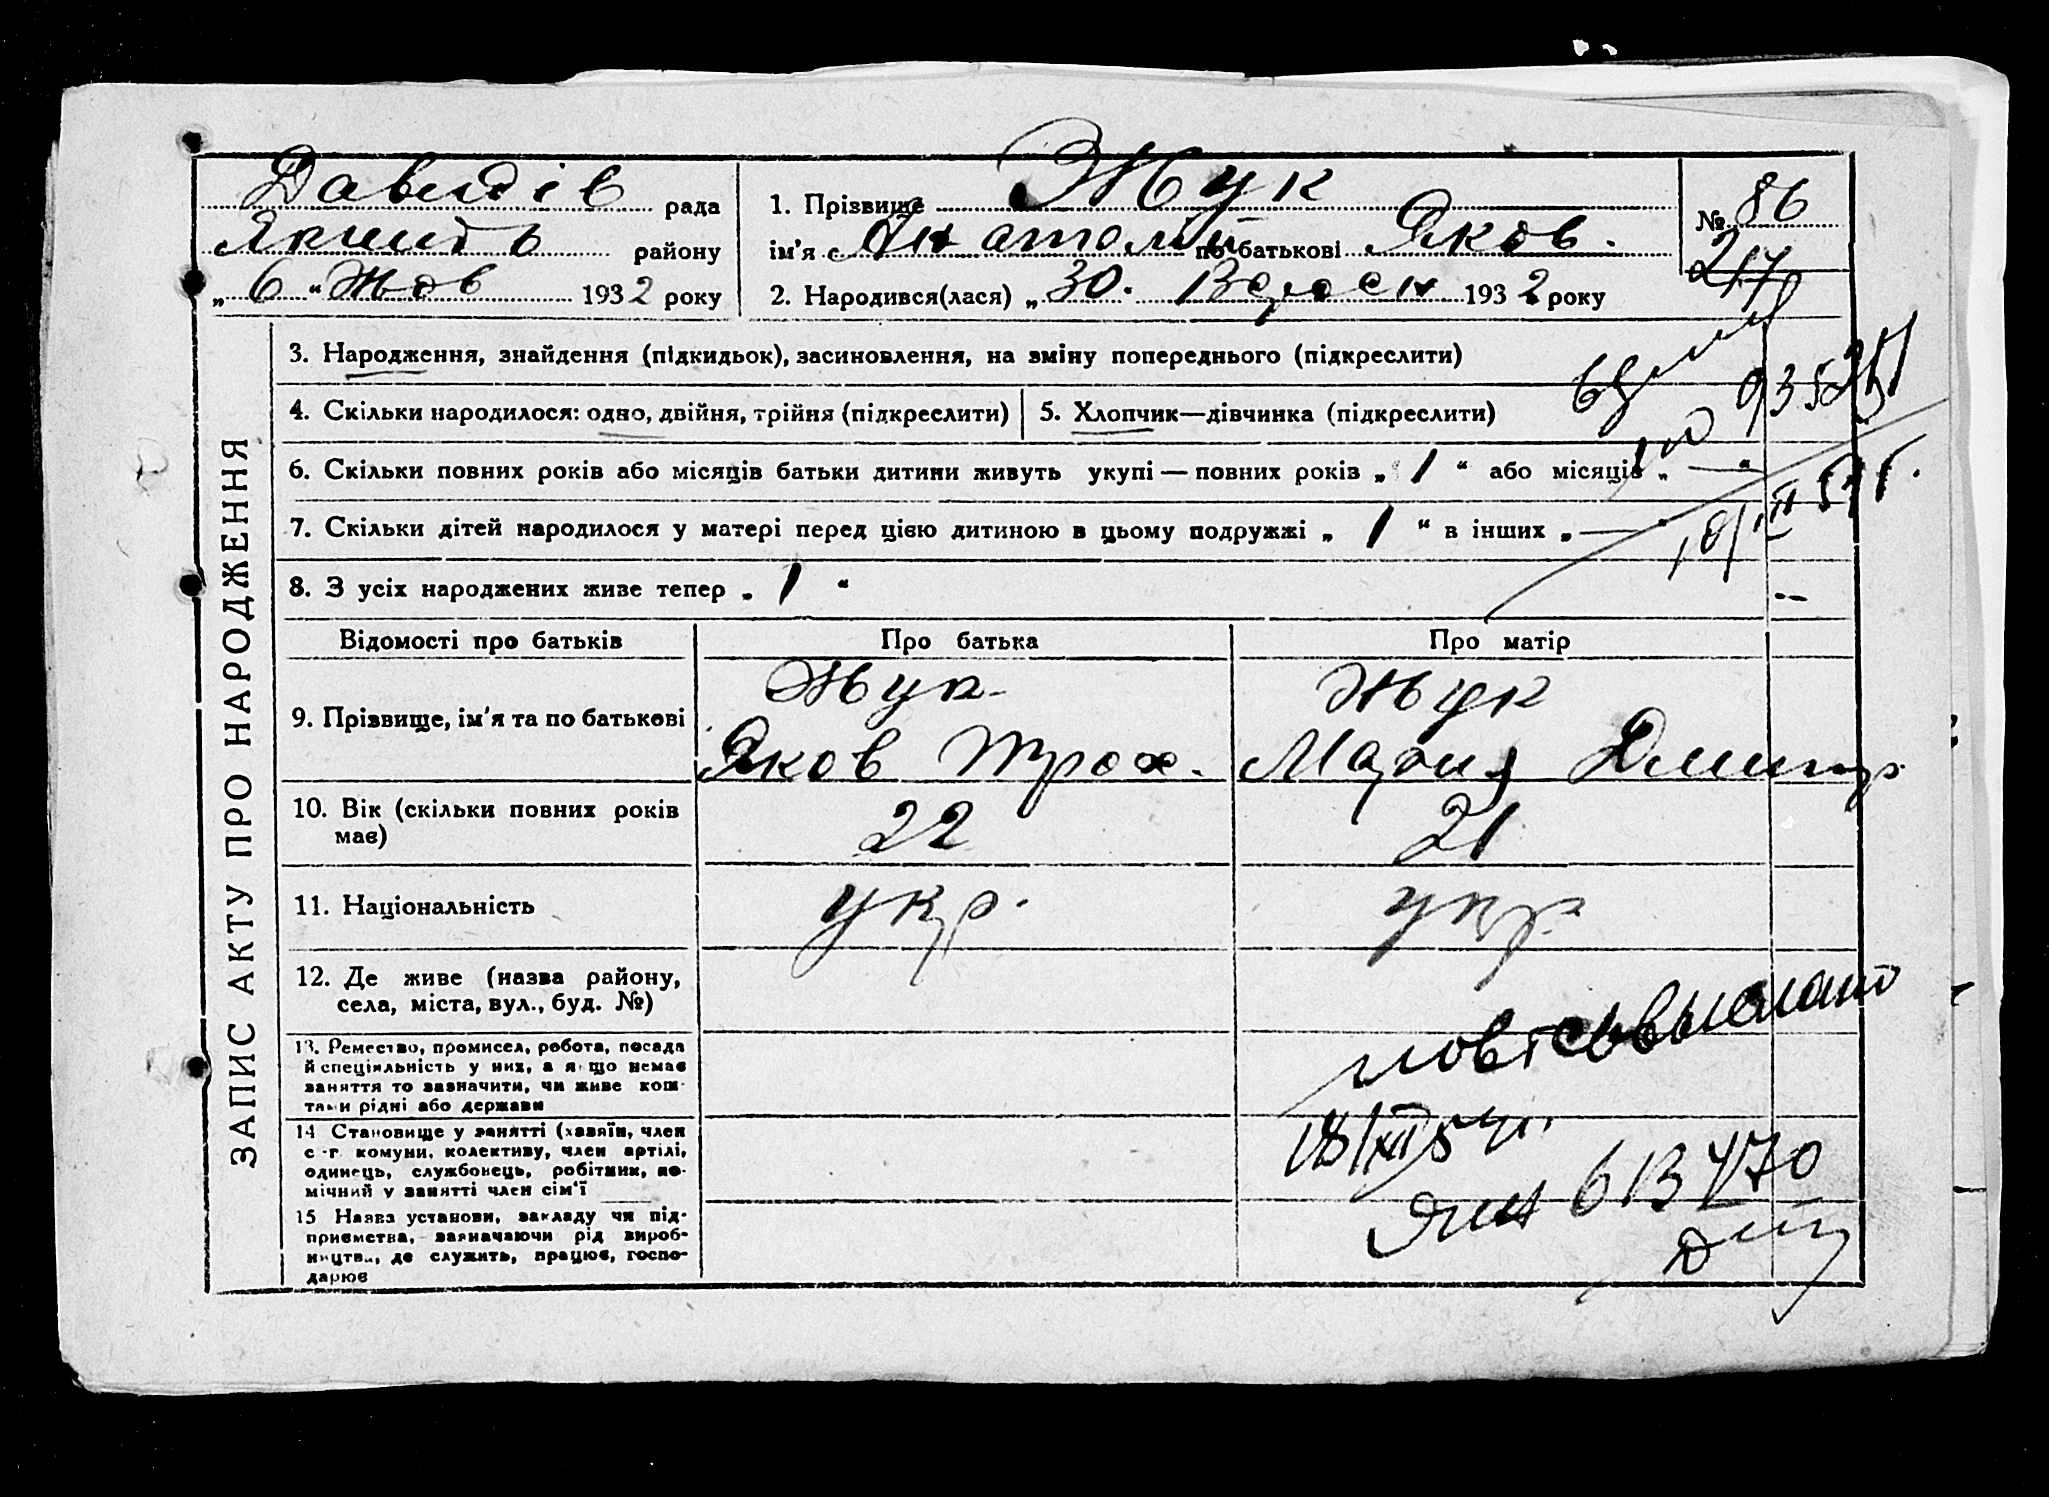 Давидів рада
Якимів району
„ 6 " Жов 1932 року
1. Прізвище Жук
ім'я Анатолій по батькові Яков.
2. Народився(лася) „ 30. Вересн 1932 року
№ 86
217
ЗАПИС АКТУ ПРО НАРОДЖЕННЯ
3. Народження, знайдення (підкидьок), засиновлення, на зміну попереднього (підкреслити)
4. Скільки народилося: одно, двійня, трійня (підкреслити)
5. Хлопчик—дівчинка (підкреслити)
6. Скільки повних років або місяців батьки дитини живуть укупі — повних років „ 1 " або місяців „ — "
7. Скільки дітей народилося у матері перед цією дитиною в цьому подружжі „ 1 " в інших „ — "
8. З усіх народжених живе тепер „ 1 "
Відомості про батьків
Про батька
Про матір
9. Прізвище, ім'я та по батькові
Жук
Яков Трох.
Жук
Мария Дмитр.
10. Вік (скільки повних років
має)
22
21
11. Національність
укр.
укр.
12. Де живе (назва району,
села, міста, вул., буд. №)
13. Ремество, промисел, робота, посада
й спеціяльність у них, а якщо немає
заняття то зазначити, чи живе кош-
тами рідні або держави
14 Становище у занятті (хазяїн, член
с.-г. комуни, колективу, член артілі,
одинець, службовець, робітник, по-
мічний у занятті член сім'ї
15 Назва установи, закладу чи під-
приємства, зазначаючи рід вироб-
ництва, де служить, працює, госпо-
дарює
18/XII 54г.
613470